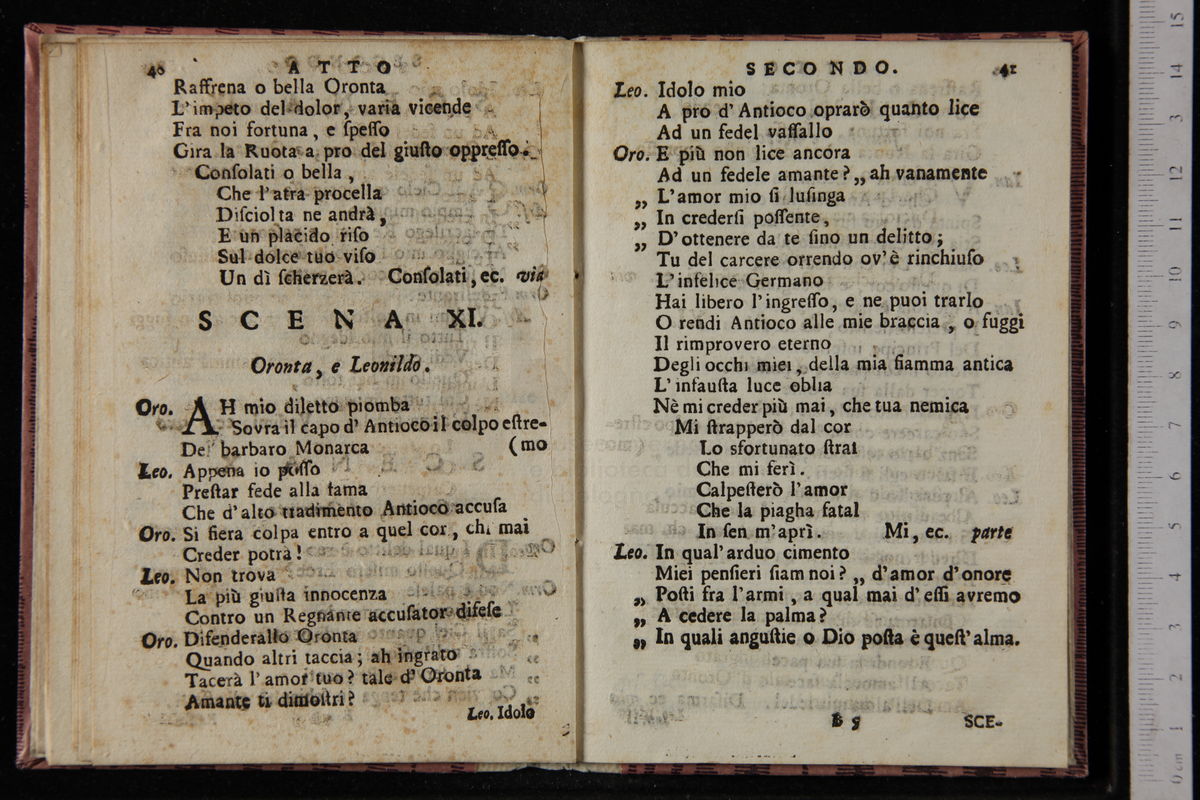 40 ATTO
Raffrena o bella Oronta
L'impeto del dolor, varia vicende
Fra noi fortuna, e ſpeſſo
Gira la Ruota a pro del giuſto oppreſſo.
Conſolati o bella,
Che l'atra procella
Diſciolta ne andrà,
E un placido riſo
Sul dolce tuo viſo
Un dì ſcherzerà. Conſolati, ec. via
SCENA XI.
Oronta, e Leonildo.
Oro. AH mio diletto piomba
Sovra il capo d'Antioco il colpo eſtre-
Del barbaro Monarca (mo
Leo. Appena io poſſo
Preſtar fede alla fama
Che d'alto tradimento Antioco accuſa
Oro. Si fiera colpa entro a quel cor, chi mai
Creder potrà!
Leo. Non trova
La più giuſta innocenza
Contro un Regnante accuſator difeſe
Oro. Difenderallo Oronta
Quando altri taccia; ah ingrato
Tacerà l'amor tuo? tale d'Oronta
Amante ti dimoſtri?
Leo. Idolo
SECONDO. 41
Leo. Idolo mio
A pro d'Antioco oprarò quanto lice
Ad un fedel vaſſallo
Oro. E più non lice ancora
Ad un fedele amante? „ ah vanamente
„ L'amor mio ſi luſinga
„ In crederſi poſſente,
„ D'ottenere da te ſino un delitto;
Tu del carcere orrendo ov'è rinchiuſo
L'infelice Germano
Hai libero l'ingreſſo, e ne puoi trarlo
O rendi Antioco alle mie braccia, o fuggi
Il rimprovero eterno
Degli occhi miei, della mia fiamma antica
L'infauſta luce oblia
Nè mi creder più mai, che tua nemica
Mi ſtrapperò dal cor
Lo sfortunato ſtral
Che mi ferì.
Calpeſterò l'amor
Che la piagha fatal
In ſen m'aprì. Mi, ec. parte
Leo. In qual'arduo cimento
Miei penſieri ſiam noi? „ d'amor d'onore
„ Poſti fra l'armi, a qual mai d'eſſi avremo
„ A cedere la palma?
„ In quali anguſtie o Dio poſta è queſt'alma.
B 5 SCE-
15
14
13
12
11
10
9
8
7
6
5
4
3
2
1
0 cm